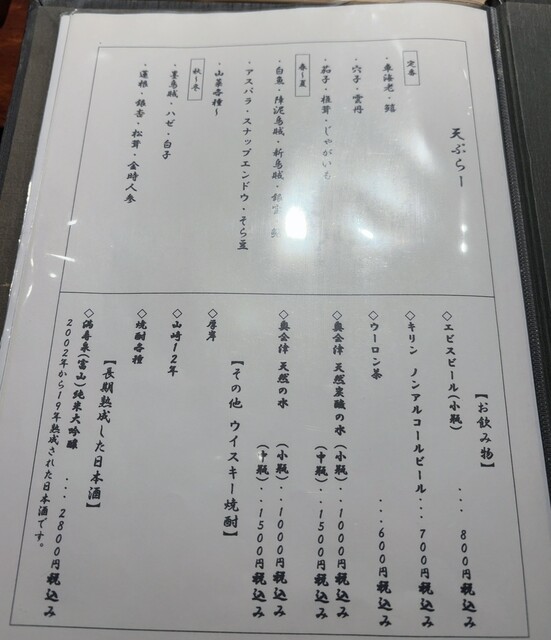 天ぷらー
定番
・車海老・鱚
・穴子・雲丹
・茄子・椎茸・じゃがいも
春〜夏
・白魚・障泥烏賊・新烏賊・銀宝・
・アスパラ・スナップエンドウ・そら豆
・山菜各種〜
秋〜冬
・墨烏賊・ハゼ・白子
・蓮根・銀杏・松茸・金時人参
【お飲み物】
◇エビスビール(小瓶) ... 800円税込み
◇キリン ノンアルコールビール... 700円税込み
◇ウーロン茶 ...600円税込み
◇奥会津 天然炭酸の水 (小瓶)..1000円税込み
(中瓶)..1500円税込み
◇奥会津 天然の水 (小瓶)..1000円税込み
(中瓶)..1500円税込み
【その他 ウイスキー焼酎】
◇厚岸
◇山崎12年
◇焼酎各種
【長期熟成した日本酒】
◇満寿泉(富山)純米大吟醸 ...2800円税込み
2002年から19年熟成された日本酒です。